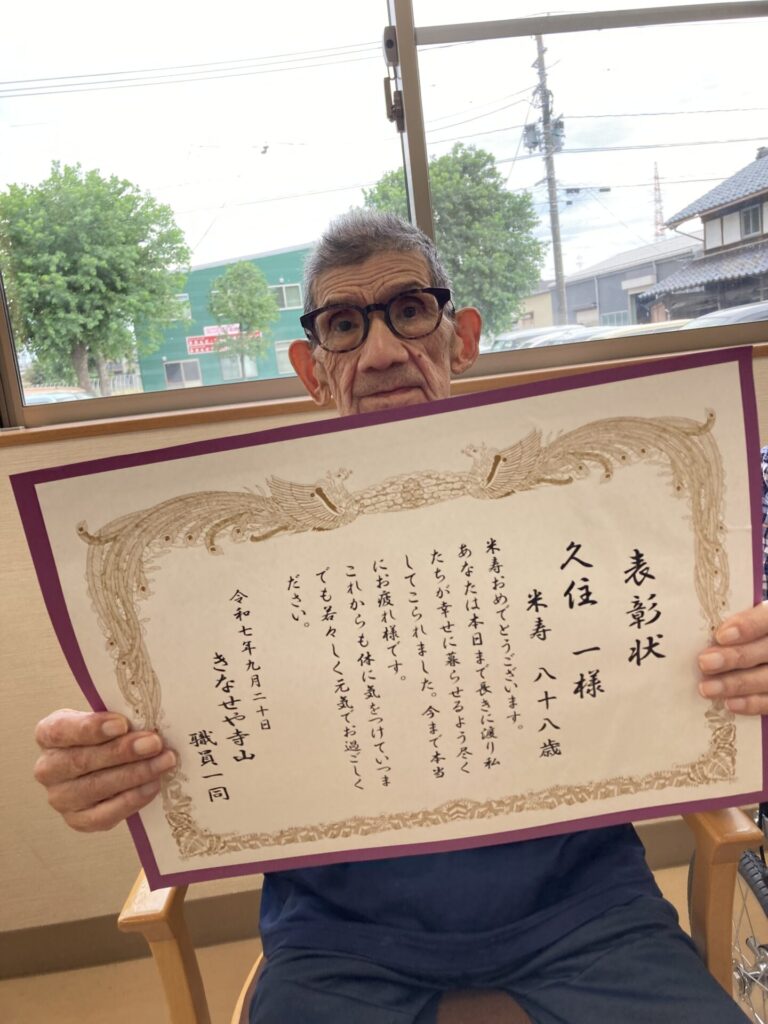 表彰状
久住 一様
米寿 八十八歳
米寿おめでとうございます。
あなたは本日まで長きに渡り私
たちが幸せに暮らせるよう尽く
してこられました。今まで本当
にお疲れ様です。
これからも体に気をつけていつま
でも若々しく元気でお過ごしく
ださい。
令和七年九月二十日
きなせや寺山
職員一同